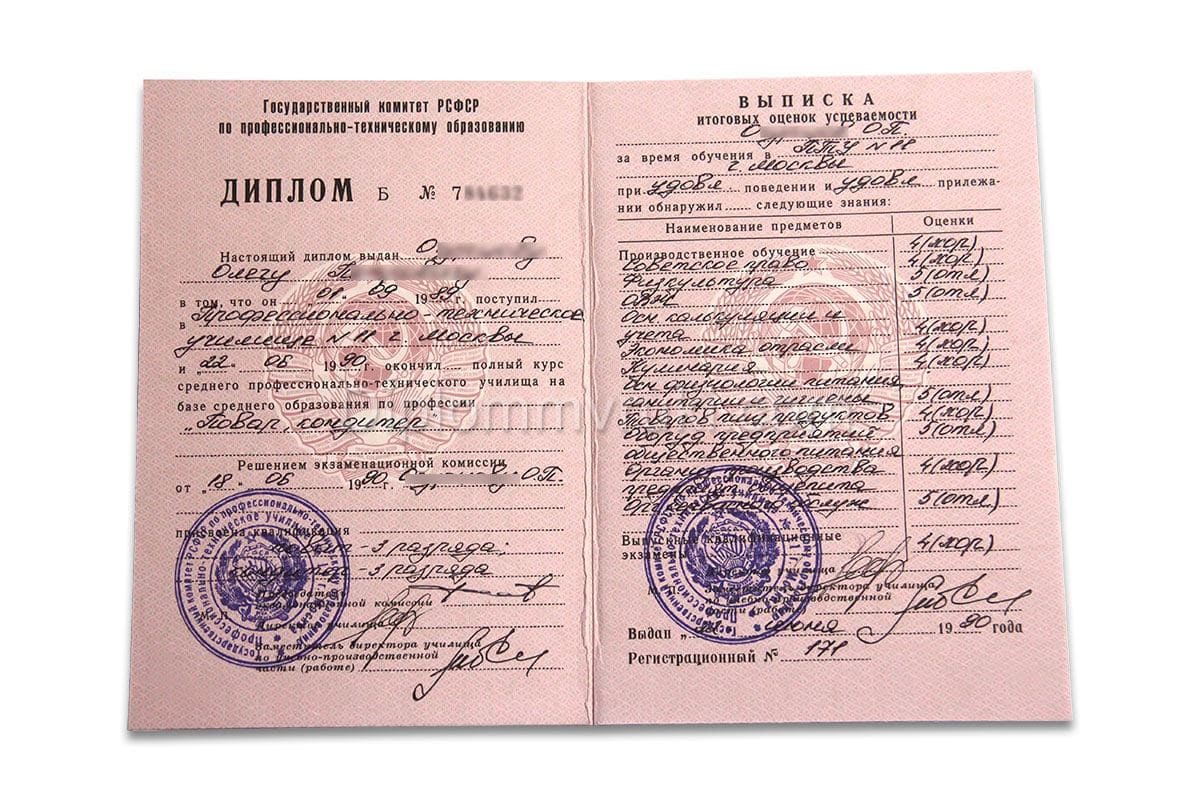 Государственный комитет РСФСР
по профессионально-техническому образованию
ДИПЛОМ Б № 7
Настоящий диплом выдан О у
Олегу П
в том, что он 01 " 09 1989 г. поступил
в Профессионально техническое
училище N 11 г. Москвы
и „22 " 06 1990 г. окончил полный курс
среднего профессионально-технического училища на
базе среднего образования по профессии
„Повар, кондитер"
Решением экзаменационной комиссии
от „18 " 06 1990 О у О.П.
присвоена квалификация
повар - 3 разряда;
кондитер - 3 разряда
Председатель
экзаменационной комиссии
Директор училища
Заместитель директора училища
по учебно-производственной
части (работе)
ВЫПИСКА
итоговых оценок успеваемости
О О.П.
за время обучения в ПТУ N 11
г. Москвы
при удовл. поведении и удовл прилежа-
нии обнаружил следующие знания:
Наименование предметов Оценки
Производственное обучение 4(хор)
Советское право 4(хор)
Физкультура 5(отл)
ОВЖ 5(отл)
осн калькуляции и
учета 4(хор)
Экономика отрасли 4(хор)
Кулинария 4(хор)
осн физиологии питания
санитарии и гигиены 5(отл)
Товаров пищ продуктов 4(хор)
Оборуд предприятий 5(отл)
общественного питания
Организ производства 4(хор)
предприят
5(отл)
Выпускные квалификационные
экзамены 4(хор)
училища
Заместитель директора училища
по учебно-производственной
части (работе)
Выдан „ июня 1990 года
Регистрационный № 171